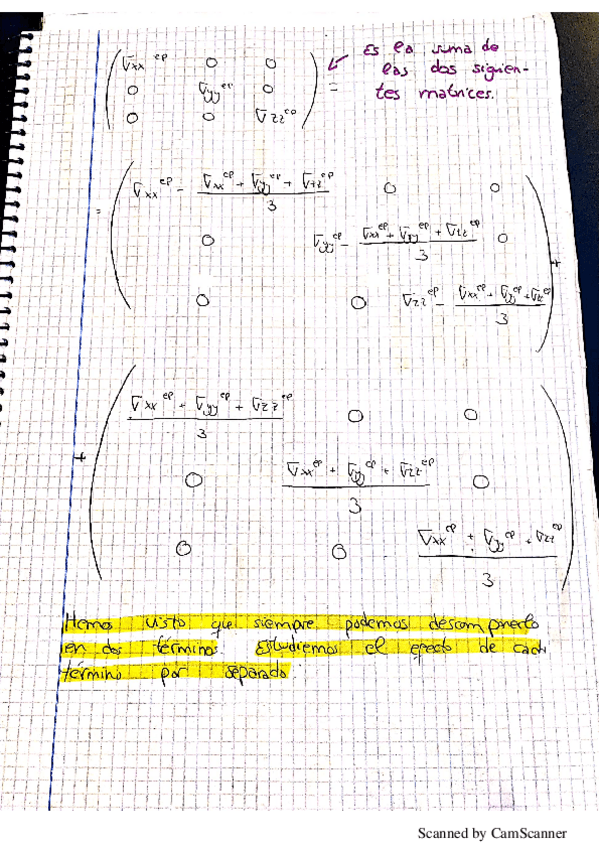 σxx^ep 0 0
0 σyy^ep 0
0 0 σzz^ep
=
Es la suma de
las dos siguien-
tes matrices.
= σxx^ep - (σxx^ep + σyy^ep + σzz^ep)/3 0 0
0 σyy^ep - (σxx^ep + σyy^ep + σzz^ep)/3 0 +
0 0 σzz^ep - (σxx^ep + σyy^ep + σzz^ep)/3
(σxx^ep + σyy^ep + σzz^ep)/3 0 0
+ 0 (σxx^ep + σyy^ep + σzz^ep)/3 0
0 0 (σxx^ep + σyy^ep + σzz^ep)/3
Hemos visto que siempre podemos descomponerlo
en dos términos. Estudiemos el efecto de cada
término por separado.
Scanned by CamScanner